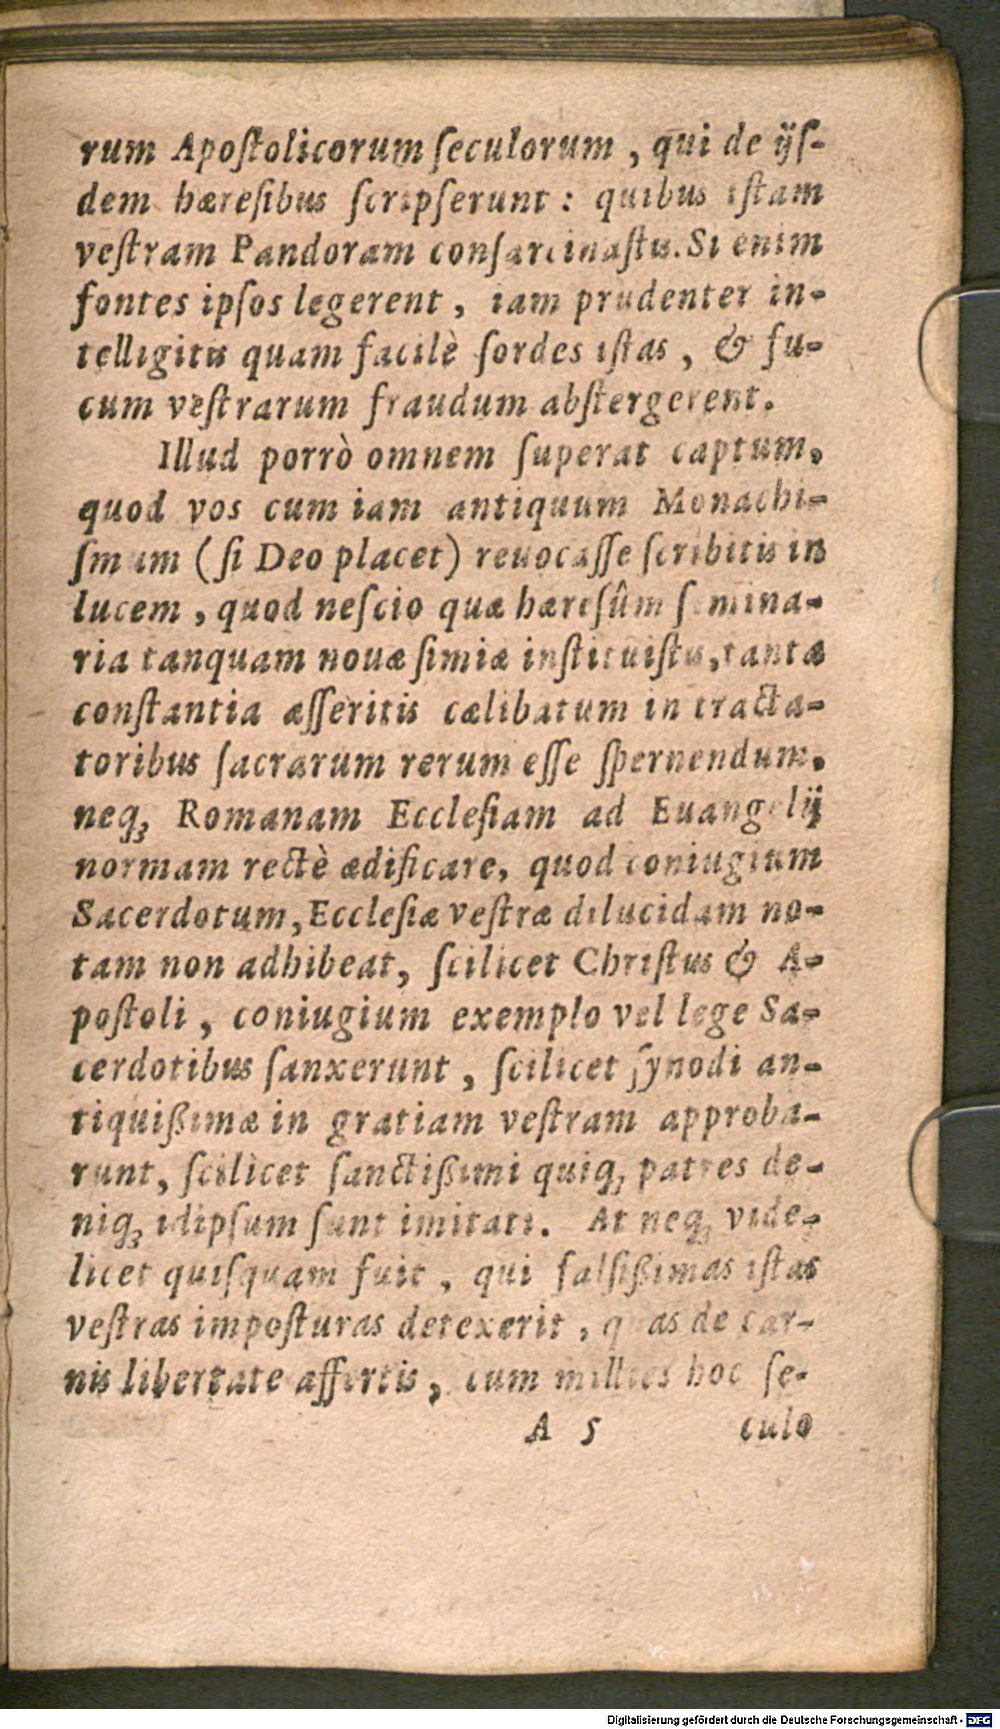 rum Apoſtolicorum ſeculorum, qui de ijſ-
dem hæreſibus ſcripſerunt: quibus iſtam
veſtram Pandoram conſarcinaſtis. Si enim
fontes ipſos legerent, iam prudenter in-
telligitis quam facilè ſordes iſtas, & fu-
cum veſtrarum fraudum abſtergerent.
Illud porrò omnem ſuperat captum,
quod vos cum iam antiquum Monachi-
ſmum (ſi Deo placet) reuocaſſe ſcribitis in
lucem, quod neſcio quæ hæreſûm ſemina-
ria tanquam nouæ ſimiæ inſtituiſtis, tanta
conſtantia aſſeritis cælibatum in tracta-
toribus ſacrarum rerum eſſe ſpernendum,
neq; Romanam Eccleſiam ad Euangelij
normam rectè ædificare, quod coniugium
Sacerdotum, Eccleſiæ veſtræ dilucidam no-
tam non adhibeat, ſcilicet Chriſtus & A-
poſtoli, coniugium exemplo vel lege Sa-
cerdotibus ſanxerunt, ſcilicet ſynodi an-
tiquißimæ in gratiam veſtram approba-
runt, ſcilicet ſanctißimi quiq; patres de-
niq; idipſum ſunt imitati. At neq; vide-
licet quiſquam fuit, qui falſißimas iſtas
veſtras impoſturas detexerit, quas de car-
nis libertate affertis, cum millies hoc ſe-
A 5 culo
Digitalisierung gefördert durch die Deutsche Forschungsgemeinschaft - DFG